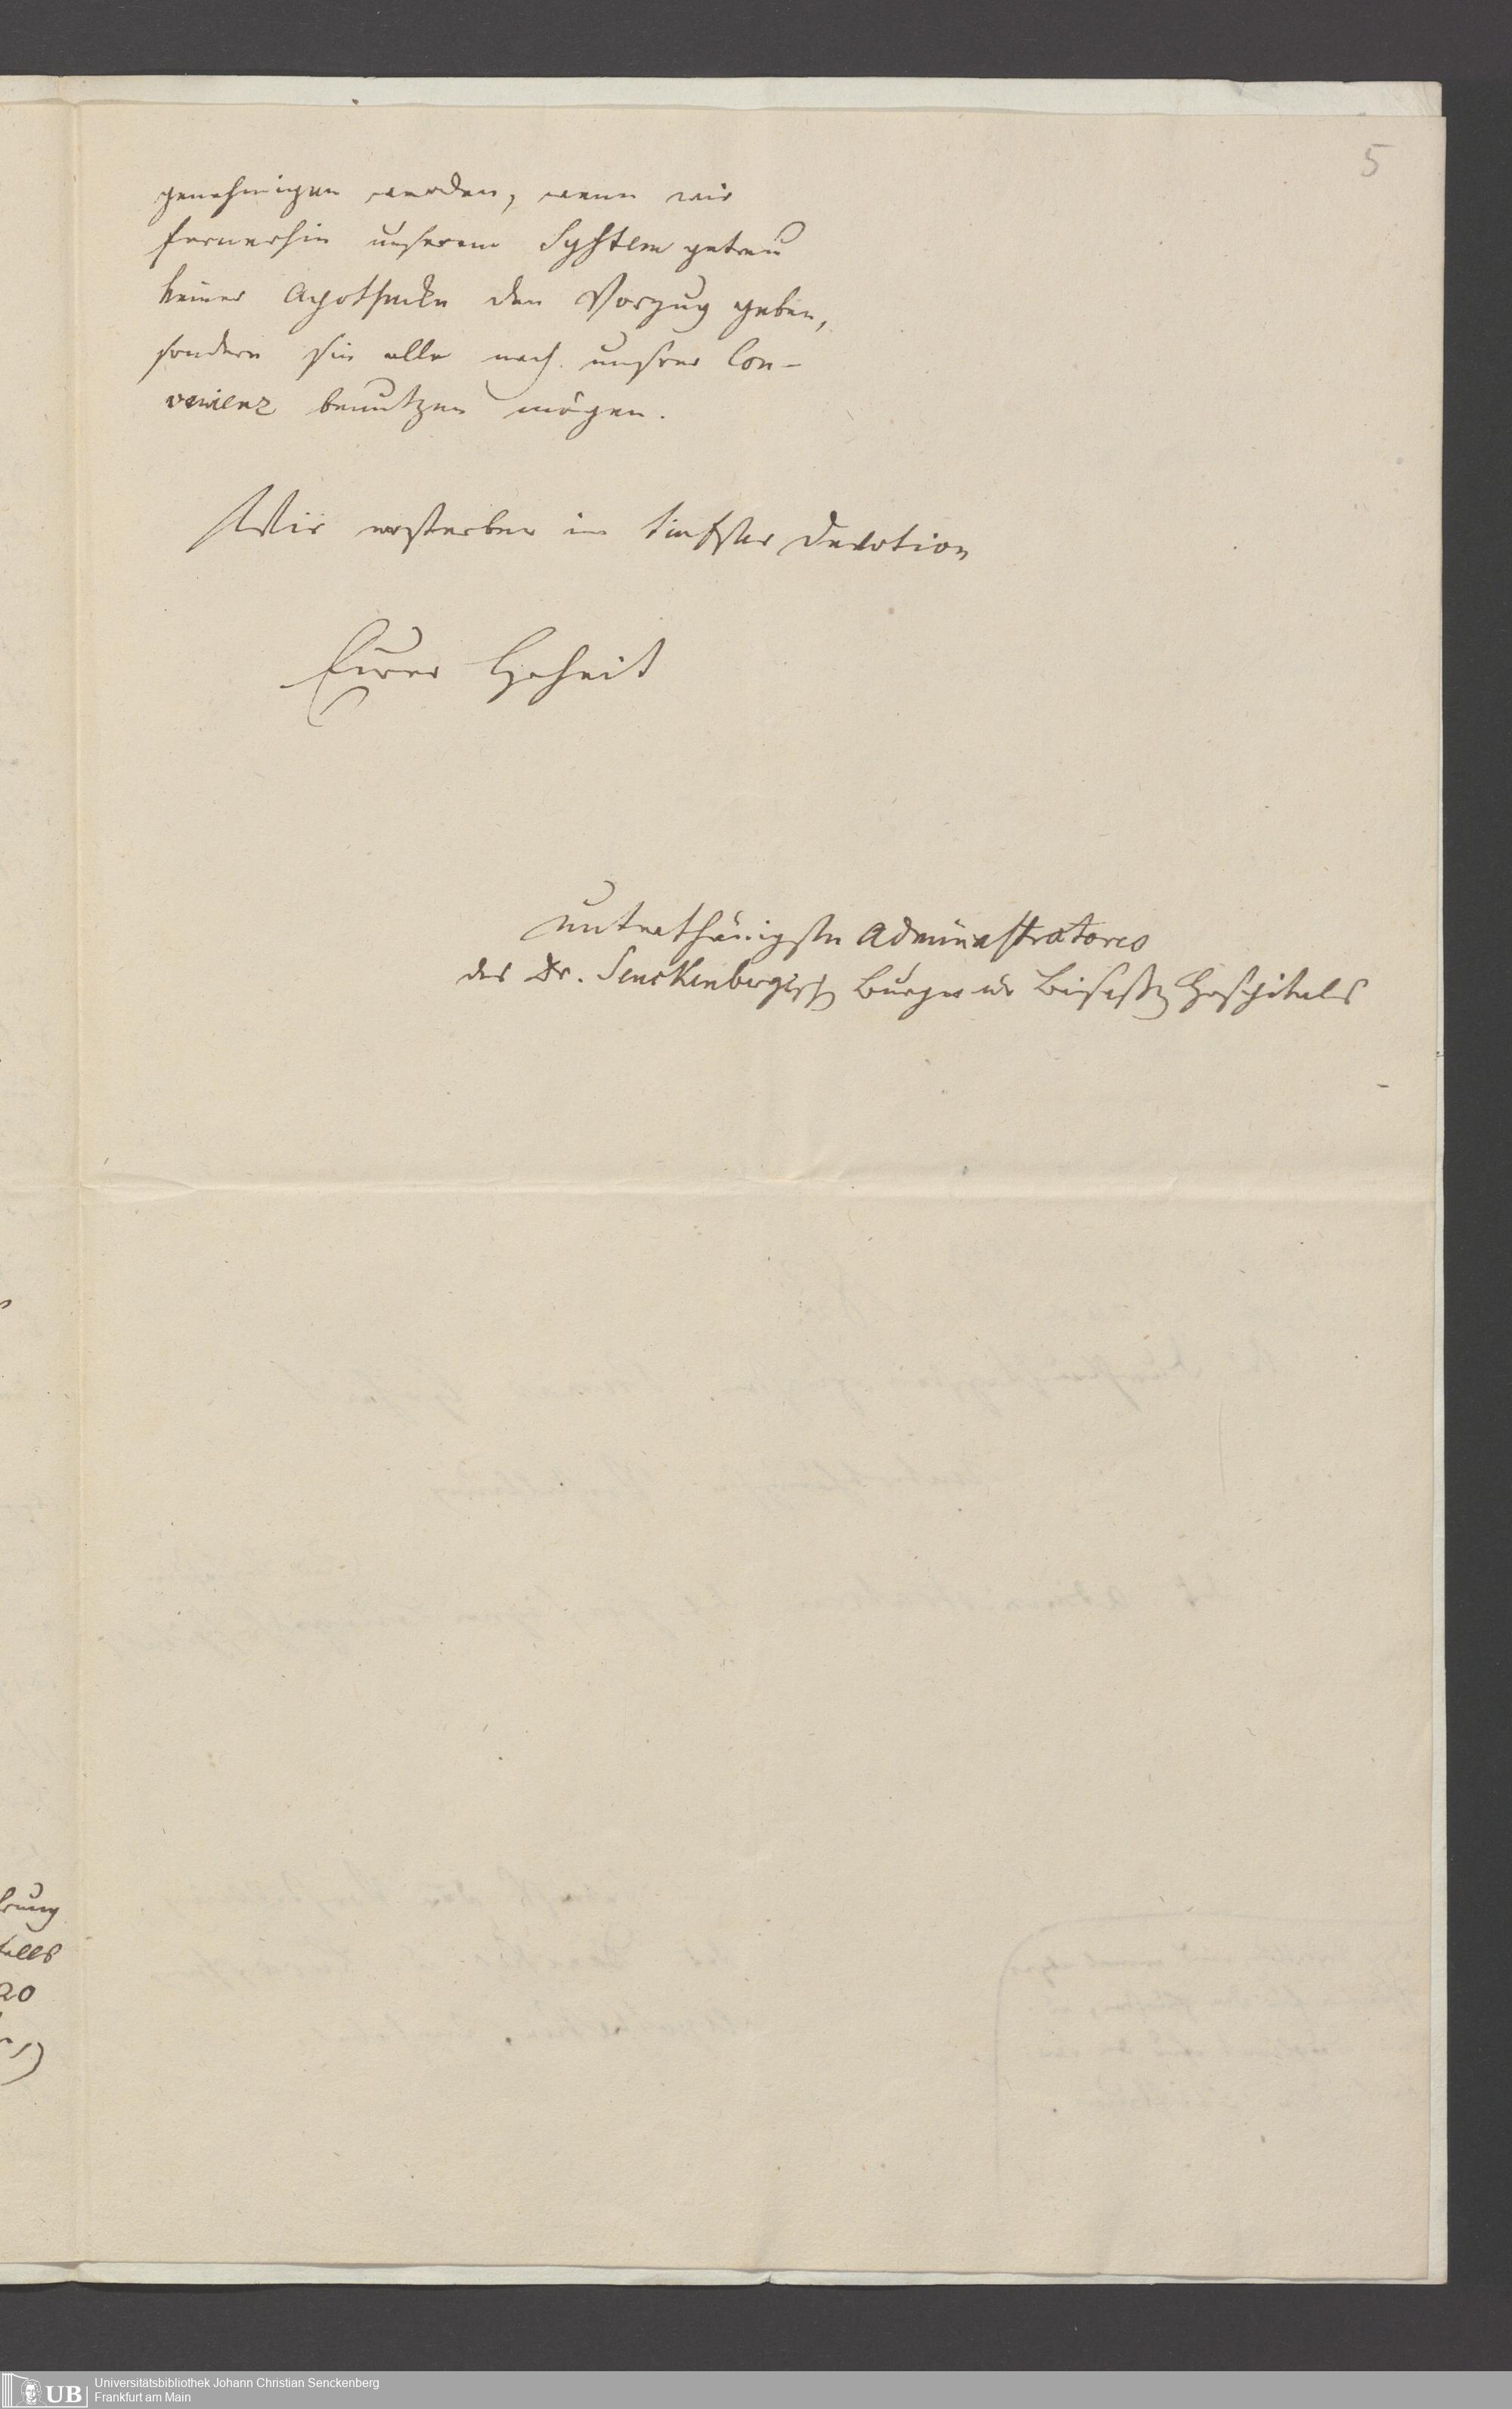 5
genehmigen werden, wenn wir
fernerhin unserem System getreu
keiner Apothecke den Vorzug geben,
sondern sie alle nach unsrer Con-
venienz benutzen mögen.
Wir ersterben in tiefster Devotion
Eurer Hoheit
unterthänigste Administratores
des Dr. Senckenbergisch Burger u Beisaß Hospitals
UB
Universitätsbibliothek Johann Christian Senckenberg
Frankfurt am Main